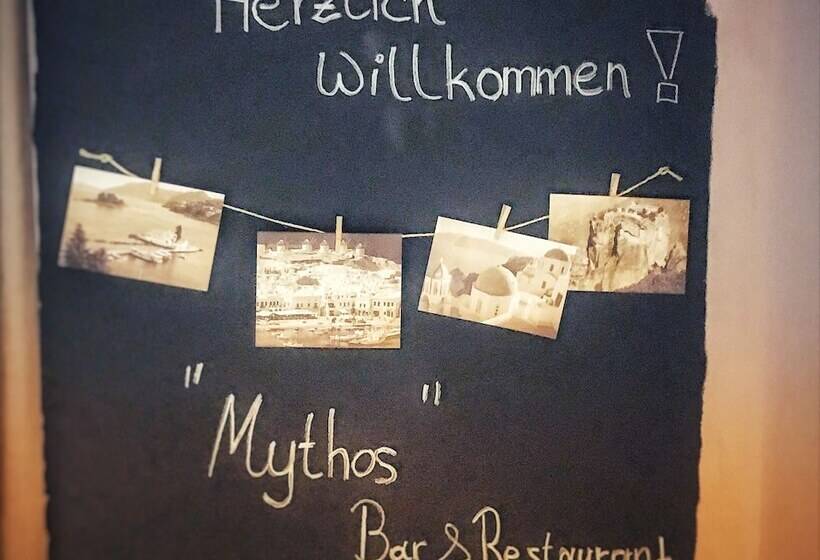 Herzlich
Willkommen!
"Mythos"
Bar & Restaurant